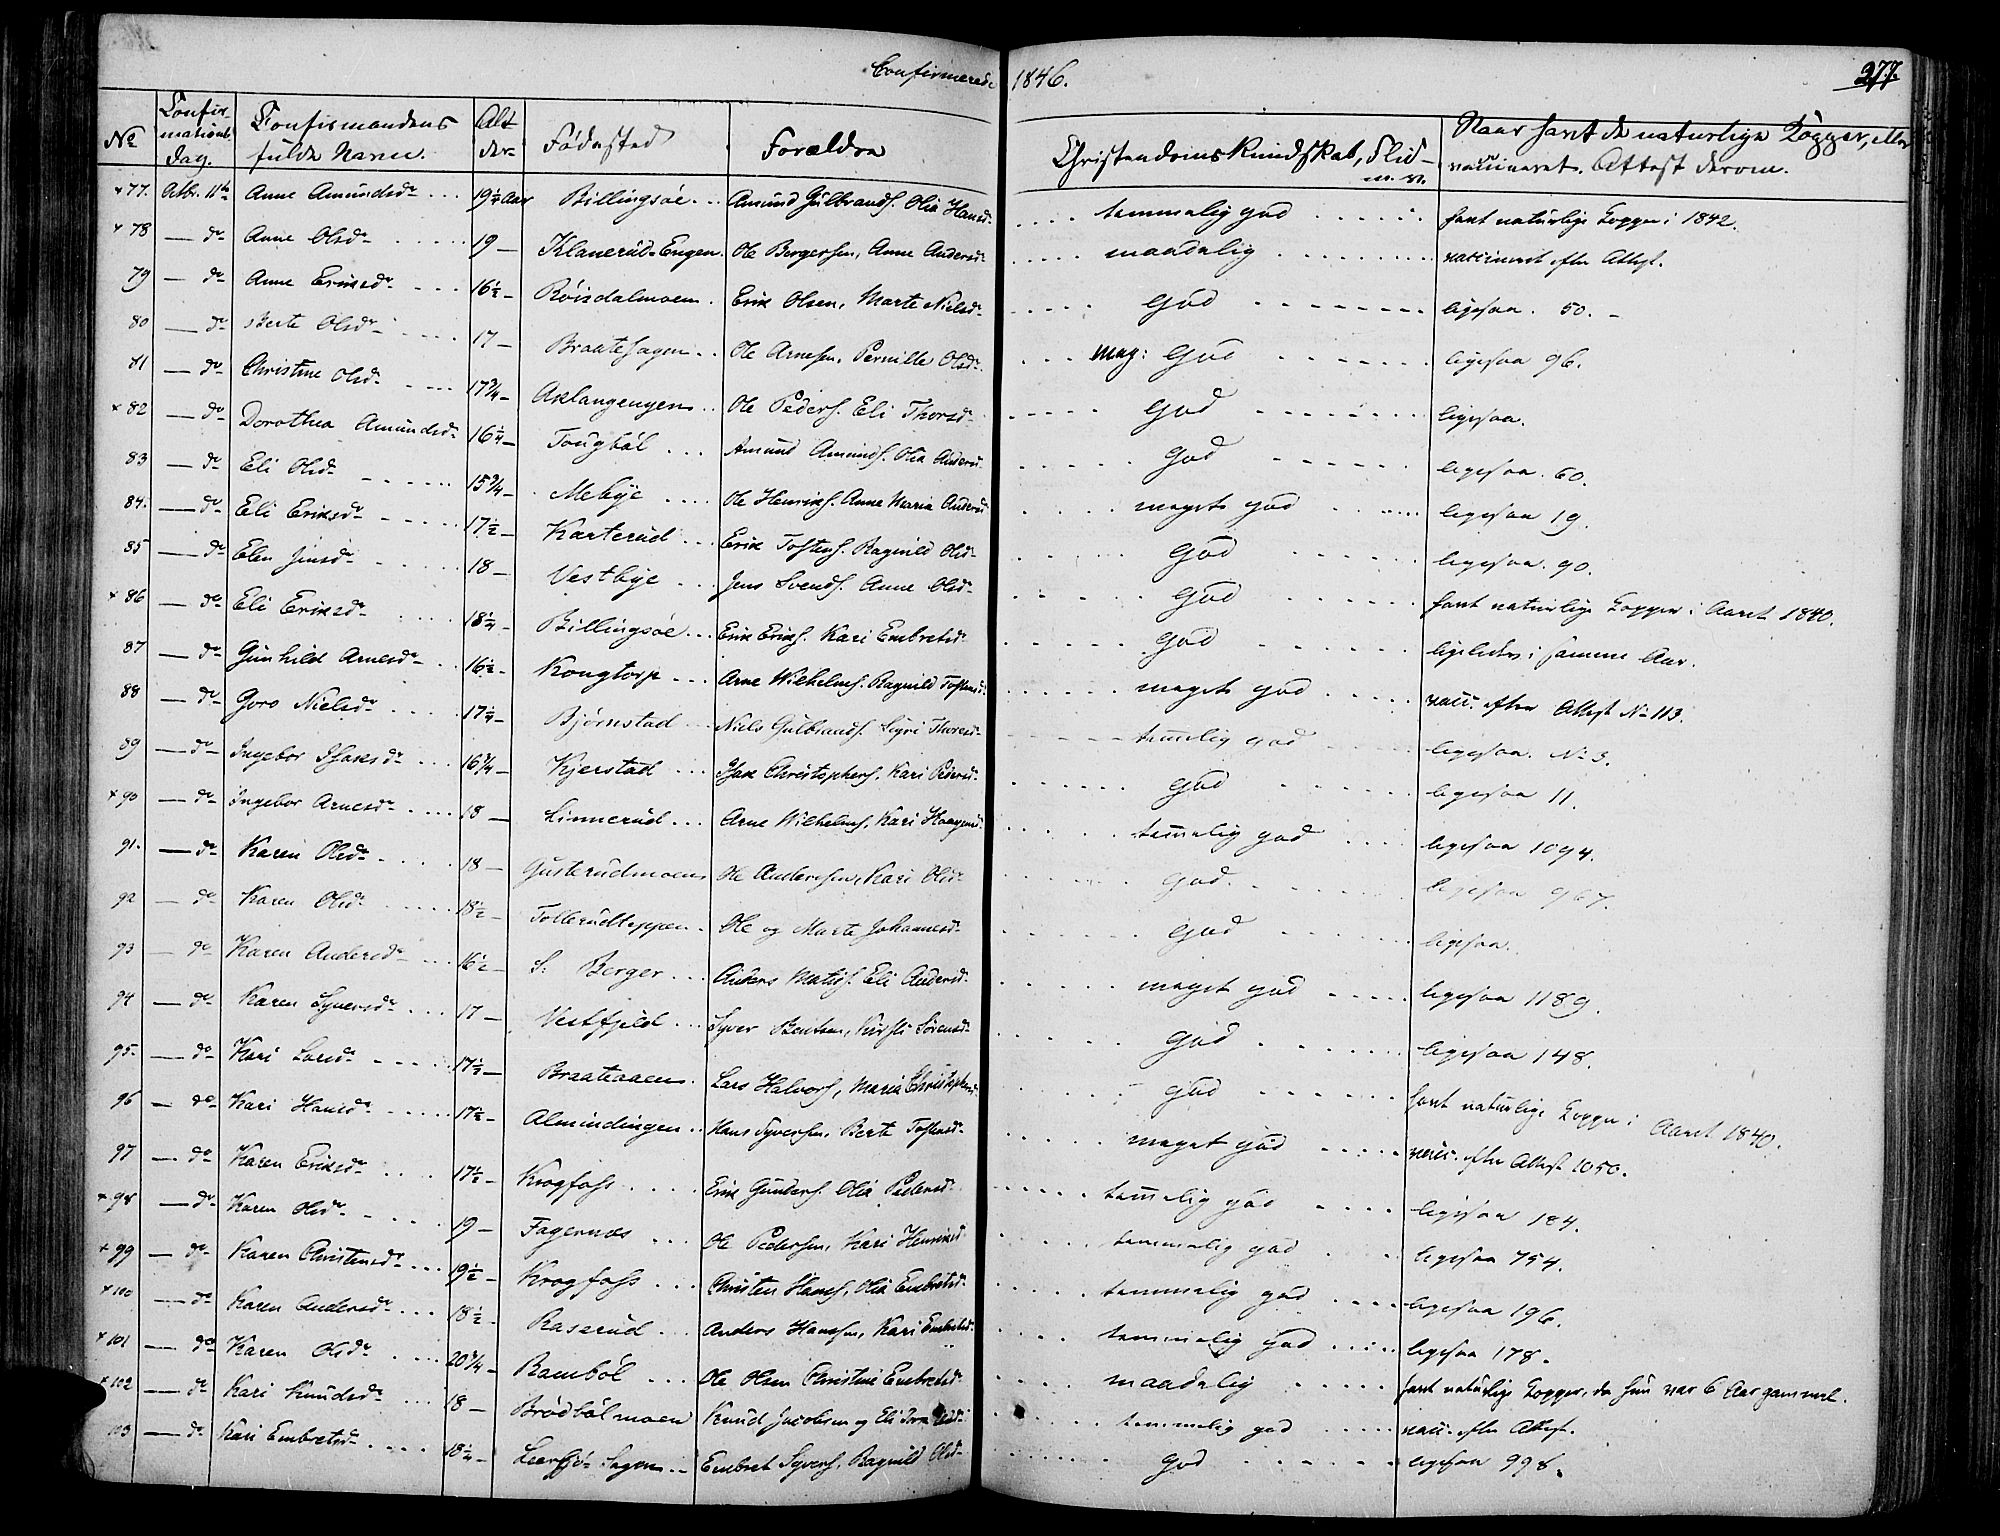 Confirmerede 1846. 277.
No Confirmations Dag. Confirmandens fulde Navn. Alder Fødested Forældre Christendoms Kundskab, Flid m. v. Naar havt de naturlige Kopper, eller vaccineret. Attest derom.
+ 77. Octbr. 11te Anne Amundsdr 19½ Aar Billingsøe Amund Gulbrands. Olia Hansd. temmelig god havt naturlige Kopper i 1842.
+ 78 — do Anne Olsdr 19 — Klanerud-Engen. Ole Bergersen, Anne Andersd maadelig vaccineret efter Attest.
79 — do Anne Eriksdr 16½ — Röisdalmoen. Erik Olsen, Marte Nielsdr God ligesaa. 50.
80 — do Berte Olsdr 17 — Braatehagen Ole Arnesen, Pernille Olsdr. meg: God ligesaa 96.
81 — do Christine Olsdr 17¾ — Aslangengen Ole Peders. Eli Thorsdr God ligesaa.
+ 82 — do Dorothea Amundsdr 16¼ — Tougböl Amund Amunds. Olia Andersd God ligesaa. 60.
83 — do Eli Olsdr 15¾ — Mebye Ole Henriks. Anne Maria Andersd meget god ligesaa 19.
84. — do Eli Eriksdr 17½ — Karterud Erik Tostens. Ragnild Olsdr God ligesaa. 90.
85 — do Elen Jensdr 18 — Vestbye Jens Svends. Anne Olsdr God havt naturlige Kopper i Aaret 1840.
+ 86 — do Eli Eriksdr 18¼ — Billingsøe Erik Eriks. Kari Embretsdr God ligeledes i samme Aar.
87 — do Gunhild Arnesdr 16½ — Kongtorp Arne Wilhelms. Ragnild Tostensd. meget god vacc. efter Attest No 113.
88 — do Goro Nielsdr 17¼ — Bjørnstad Niels Gulbrands. Sigri Thoresd temelig god ligesaa. No 3.
89 — do Ingebor Isaksdr 16¾ — Kjerstad Isak Christophers. Kari Pedersd. God ligesaa 11.
+ 90 — do Ingebor Arnesdr 18 — Linnerud Arne Wilhelms. Kari Haagensd. temelig god ligesaa 1094.
91. — do Karen Olsdr 18 — Gusterudmoen Ole Andersen, Kari Olsdr God ligesaa 967.
92 — do Karen Olsdr 18½ — Tollerudteppen Ole og Marte Johannesdr God ligesaa.
93 — do Karen Andersdr 16½ — S: Berger Anders Mathis. Eli Andersd. meget god ligesaa 1189.
94 — do Karen Syversdr 17 — Vestfjeld Syver Bentsen, Kirsti Sörensdr God ligesaa 148.
95. — do Kari Larsdr 17½ — Braataaen. Lars Halvors, Maria Christophersd God havt naturlige Kopper i Aaret 1840.
96 — do Kari Hansdr 17½ — Almindingen Hans Syversen, Berte Tostensdr meget god vacc. efter Attest 1050.
97 — do Karen Eriksdr 17½ — Krogfoss Erik Gunders. Olia Pedersd. temelig god ligesaa 184.
+ 98 — do Karen Olsdr 19 — Fagernæs Ole Pedersen, Kari Henriksd temmelig god ligesaa 754.
+ 99 — do Karen Christensdr 19½ — Krogfoss Christen Hans., Olia Embretsdr temmelig god ligesaa 196.
+ 100 — do Karen Andersdr 18½ — Raserud Anders Hansen, Kari Embretsd. temmelig god ligesaa 178.
+ 101 — do Karen Olsdr 20¾ — Ramböl Ole Olsen Christine Embretsd. maadelig havt naturlige Kopper, da hun var 6 Aar gammel.
+ 102 — do Kari Knudsdr 18 — Brödbölmoen Knud Jacobsen og Eli temmelig god vacc. efter Attest.
103 — do Kari Embretsdr 18¼ — Embret Syvers. Ragnild Olsdr God ligesaa 998.